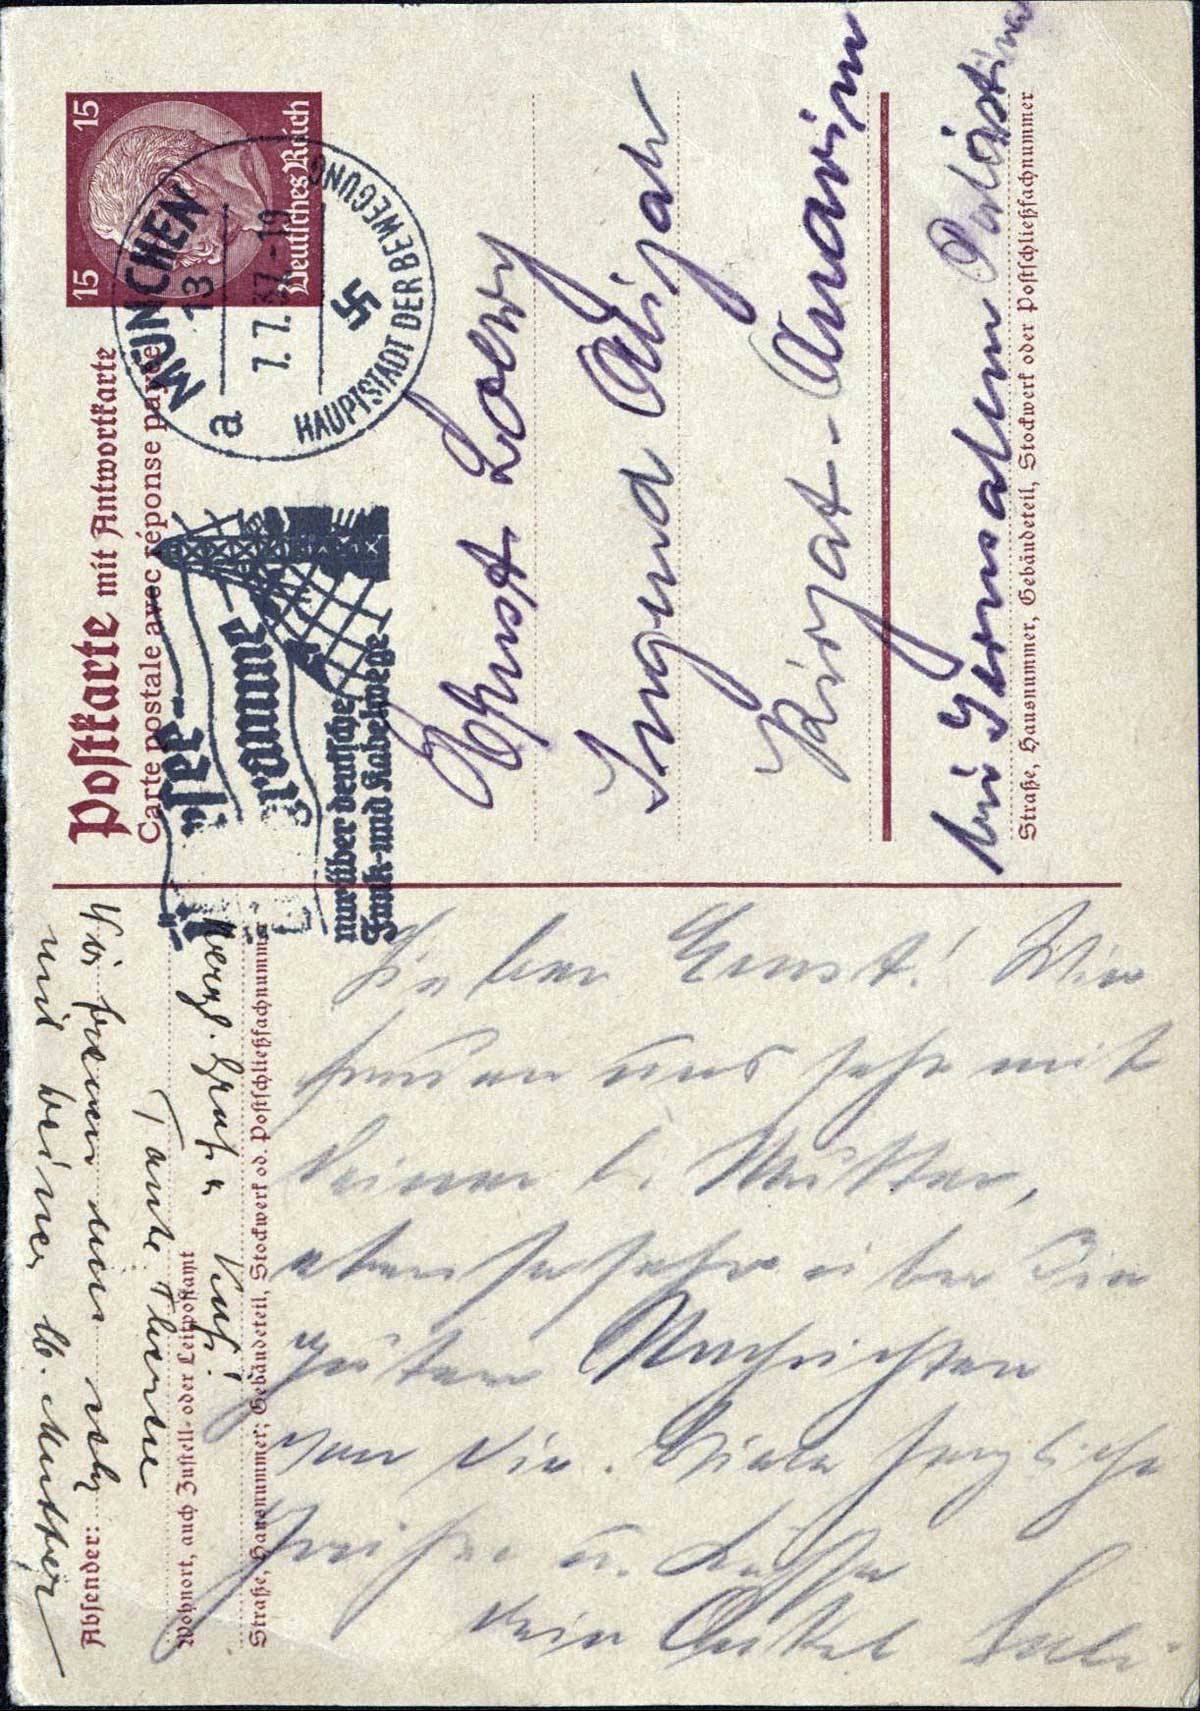 Postkarte mit Antwortkarte
Carte postale avec réponse payée
15
15
Deutsches Reich
MÜNCHEN
13
a 7.7.37-19
HAUPTSTADT DER BEWEGUNG
nur über deutsche
Funk- und Kabelwege
Ernst Loewy
Jugend Alijah
Kirjat-Anavim
bei Jerusalem Palästina
Straße, Hausnummer, Gebäudeteil, Stockwerk oder Postschließfachnummer
Absender:
Wohnort, auch Zustell- oder Leitpostamt
Straße, Hausnummer, Gebäudeteil, Stockwerk od. Postschließfachnummer
Wir freuen uns sehr
mit deiner lb. Mutter
herzl. Gruß u Kuß!
Tante
Lieber Ernst! Wir
freuen uns sehr mit
Deiner l. Mutter,
ebenso sehr über die
guten Nachrichten
von Dir. Viele herzliche
Grüße u. Küsse
Dein Onkel